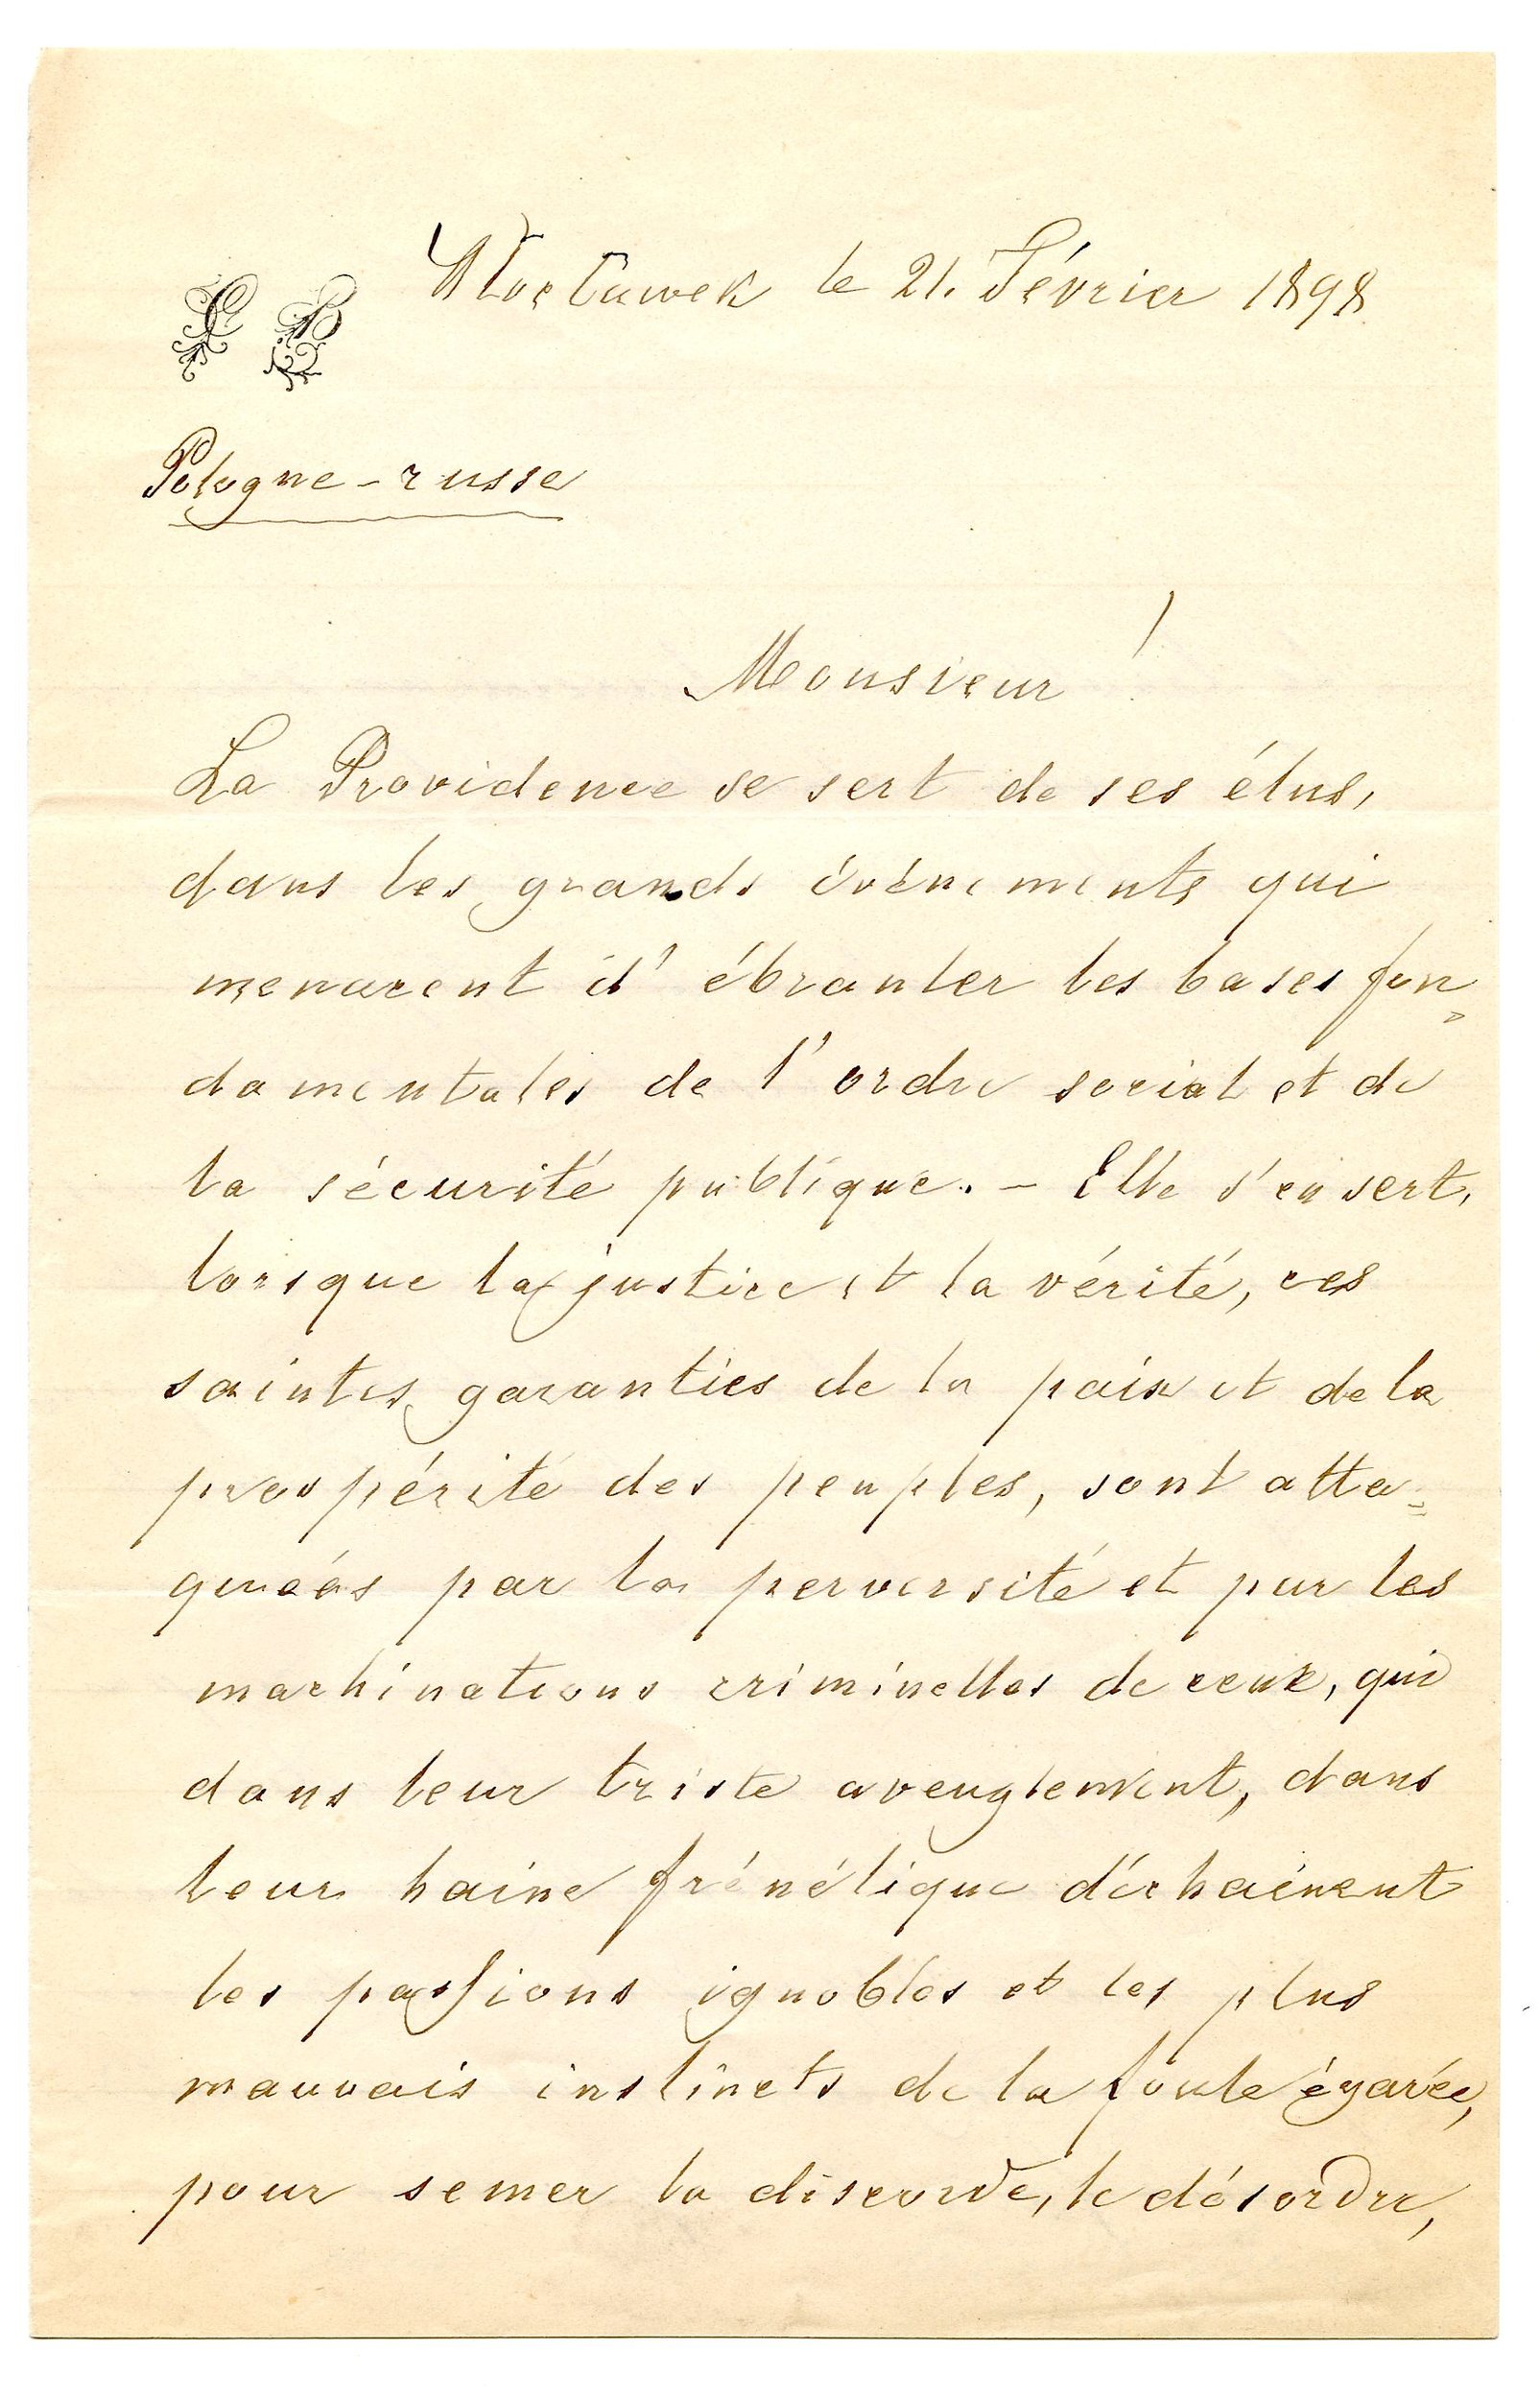 Włocławek le 21. Février 1898
Pologne-russe
Monsieur !
La Providence se sert de ses élus,
dans les grands évènements qui
menacent d'ébranler les bases fon=
damentales de l'ordre social et de
la sécurité publique. - Elle s'en sert,
lorsque la justice et la vérité, ces
saintes garanties de la paix et de la
prospérité des peuples, sont atta=
quéés par la perversité et par les
machinations criminelles de ceux, qui
dans leur triste aveuglement, dans
leur haine frénétique déchaînent
les passions ignobles et les plus
mauvais instincts de la foule égarée,
pour semer la discorde, le désordre,